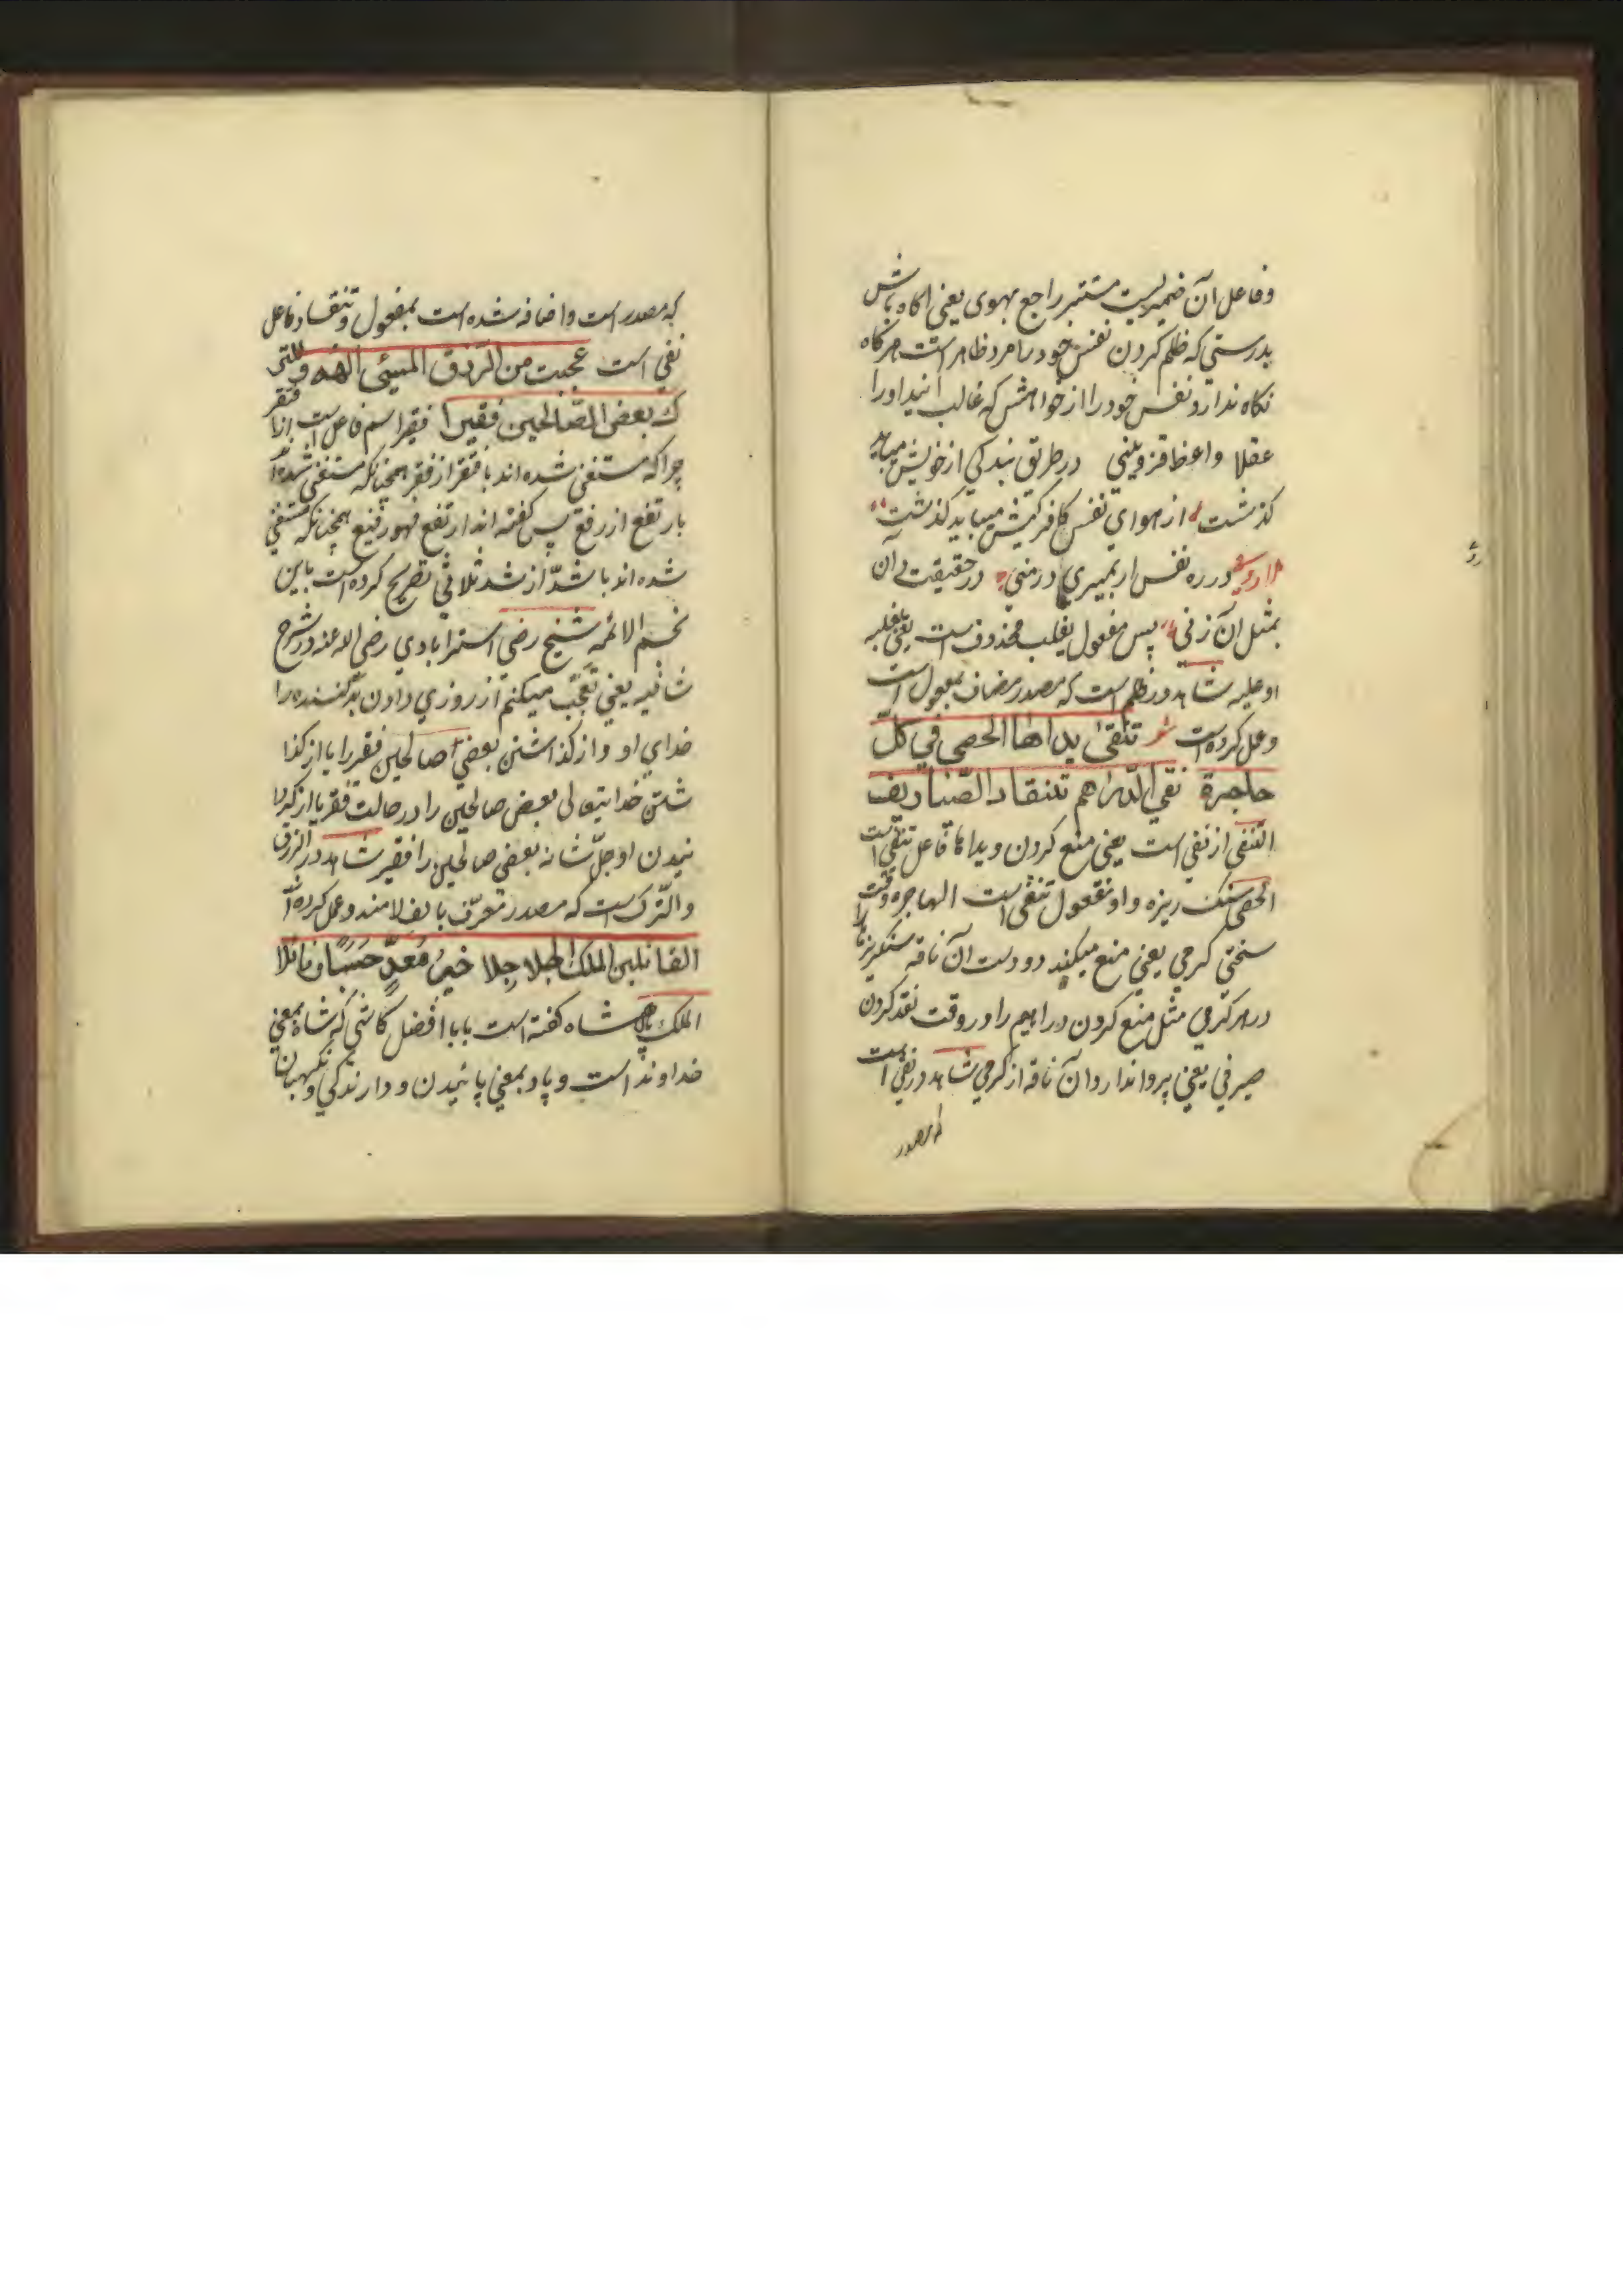 وفاعل آن ضمیریست مستتر راجع بهوی یعنی اکاه باش
بدرستی که ظلم کردن نفس خود را مرد ظاهر است هر کاه
نکاه ندارد نفس خود را از خواهش که غالب آید او را
عقلا واعظ قزوینی در طریق بندکی از خویش میباید
کذشت از هوای نفس کافر کیش میباید کذشت
در ره نفس ار بمیری در منی در حقیقت دان
بمثل آن زنی پس مفعول یغلب محذوف است یعنی یغلبه
او علیه شاهد در ظلم است که مصدر مضاف بمفعول است
وعمل کرده است تنفی یداها الحصی فی کل
هاجرة نفی الدراهم تنقاد الصیاریف
التنفی از نفی است یعنی منع کردن ویداها فاعل تنفی است
الحصی سنک ریزه واو مفعول تنفی است الهاجره وقت
سختی کرمی یعنی منع میکند دو دست آن ناقه سنکریزها را
در هر کرمی مثل منع کردن دراهم را در وقت نقد کردن
صیرفی یعنی پروا ندارد آن ناقه از کرمی شاهد در نفی است
که مصدر
که مصدر است واضافه شده است بمفعول وتنقاد فاعل
نفی است عجبت من الرزق المسیئی الهه و للتر
ک بعض الصالحین فقیرا فقیرا اسم فاعل است از افتقر
چرا که مستغنی شده اند با فتقر از فقر همچنانکه مستغنی شده اند
بارتفع از رفع پس کفته اند ارتفع فهو رفیع همچنانکه مستغنی
شده اند با شتد از شد ثلاثی تصریح کرده است باین
نجم الائمه شیخ رضی استرابادی رضی الله عنه در شرح
شافیه یعنی تعجب میکنم از روزی دادن بدکننده را
خدای او و از کذاشتن بعضی صالحین فقر را یا از کذا
شتن خدایتعالی بعض صالحین را در حالت فقر یا از کردا
نیدن او جل شانه بعض صالحین را فقیر شاهد در الرزق
والترک است که مصدر معرف بالف لامند وعمل کرده اند
القاتلین الملک الحلاحلا خیر معد حسبا ونائلا
الملک پادشاه کفته است بابا افضل کاشی که شاه بمعنی
خداوند است و پاد بمعنی پائیدن و دارندکی و نکهبان